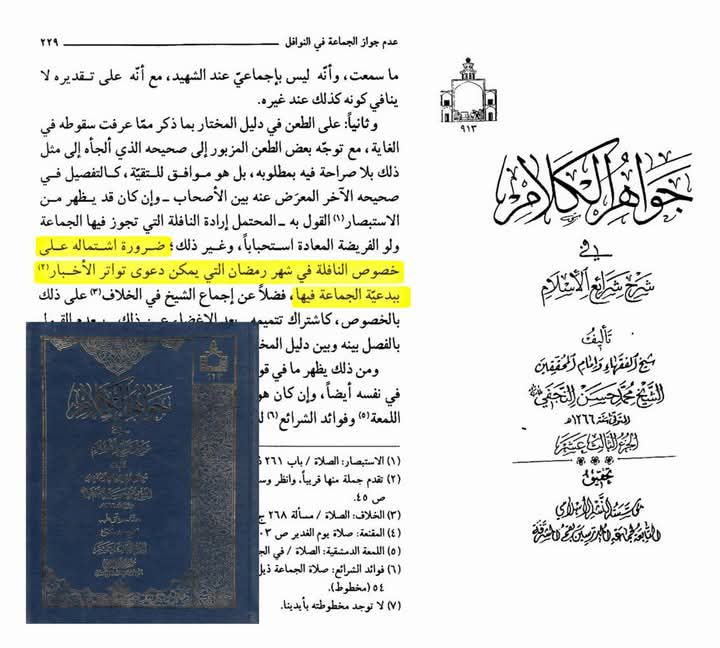 عدم جواز الجماعة في النوافل ٢٢٩
ما سمعت، وأنّه ليس بإجماعيّ عند الشهيد، مع أنّه على تقديره لا
ينافي كونه كذلك عند غيره.
وثانياً: على الطعن في دليل المختار بما ذكر ممّا عرفت سقوطه في
الغاية، مع توجّه بعض الطعن المزبور إلى صحيحه الذي ألجأه إلى مثل
ذلك بلا صراحة فيه بمطلوبه، بل هو موافق للتقيّة، كالتفصيل في
صحيحه الآخر المعرَض عنه بين الأصحاب ـ وإن كان قد يظهر من
الاستبصار(١) القول به ـ المحتمل إرادة النافلة التي تجوز فيها الجماعة
ولو الفريضة المعادة استحباباً، وغير ذلك؛ ضرورة اشتماله على
خصوص النافلة في شهر رمضان التي يمكن دعوى تواتر الأخبار(٢)
ببدعيّة الجماعة فيها، فضلاً عن إجماع الشيخ في الخلاف(٣) على ذلك
بالخصوص، كاشتراك تتميمه بعد الإغضاء عن ذلك بعدم القول
بالفصل بينه وبين دليل
ومن ذلك يظهر ما في
في نفسه أيضاً، وإن كان هو
اللمعة(٥) وفوائد الشرائع(٦)
(١) الاستبصار: الصلاة / باب ٢٦١
(٢) تقدم جملة منها قريباً، وانظر
ص ٤٥.
(٣) الخلاف: الصلاة / مسألة ٢٦٨
(٤) المقنعة: صلاة يوم الغدير ص
(٥) اللمعة الدمشقية: الصلاة / في
(٦) فوائد الشرائع: صلاة الجماعة ذيل
٥٤ (مخطوط).
(٧) لا توجد مخطوطته بأيدينا.
٩١٣
جواهر الكلام
في
شرح شرائع الإسلام
تأليف
شيخ الفقهاء وإمام المحققين
الشيخ محمد حسن النجفي
المتوفى سنة ١٢٦٦هـ
الجزء الثالث عشر
تحقيق
مؤسسة النشر الإسلامي
التابعة لجماعة المدرسين بقم المشرفة
٩١٣
جواهر الكلام